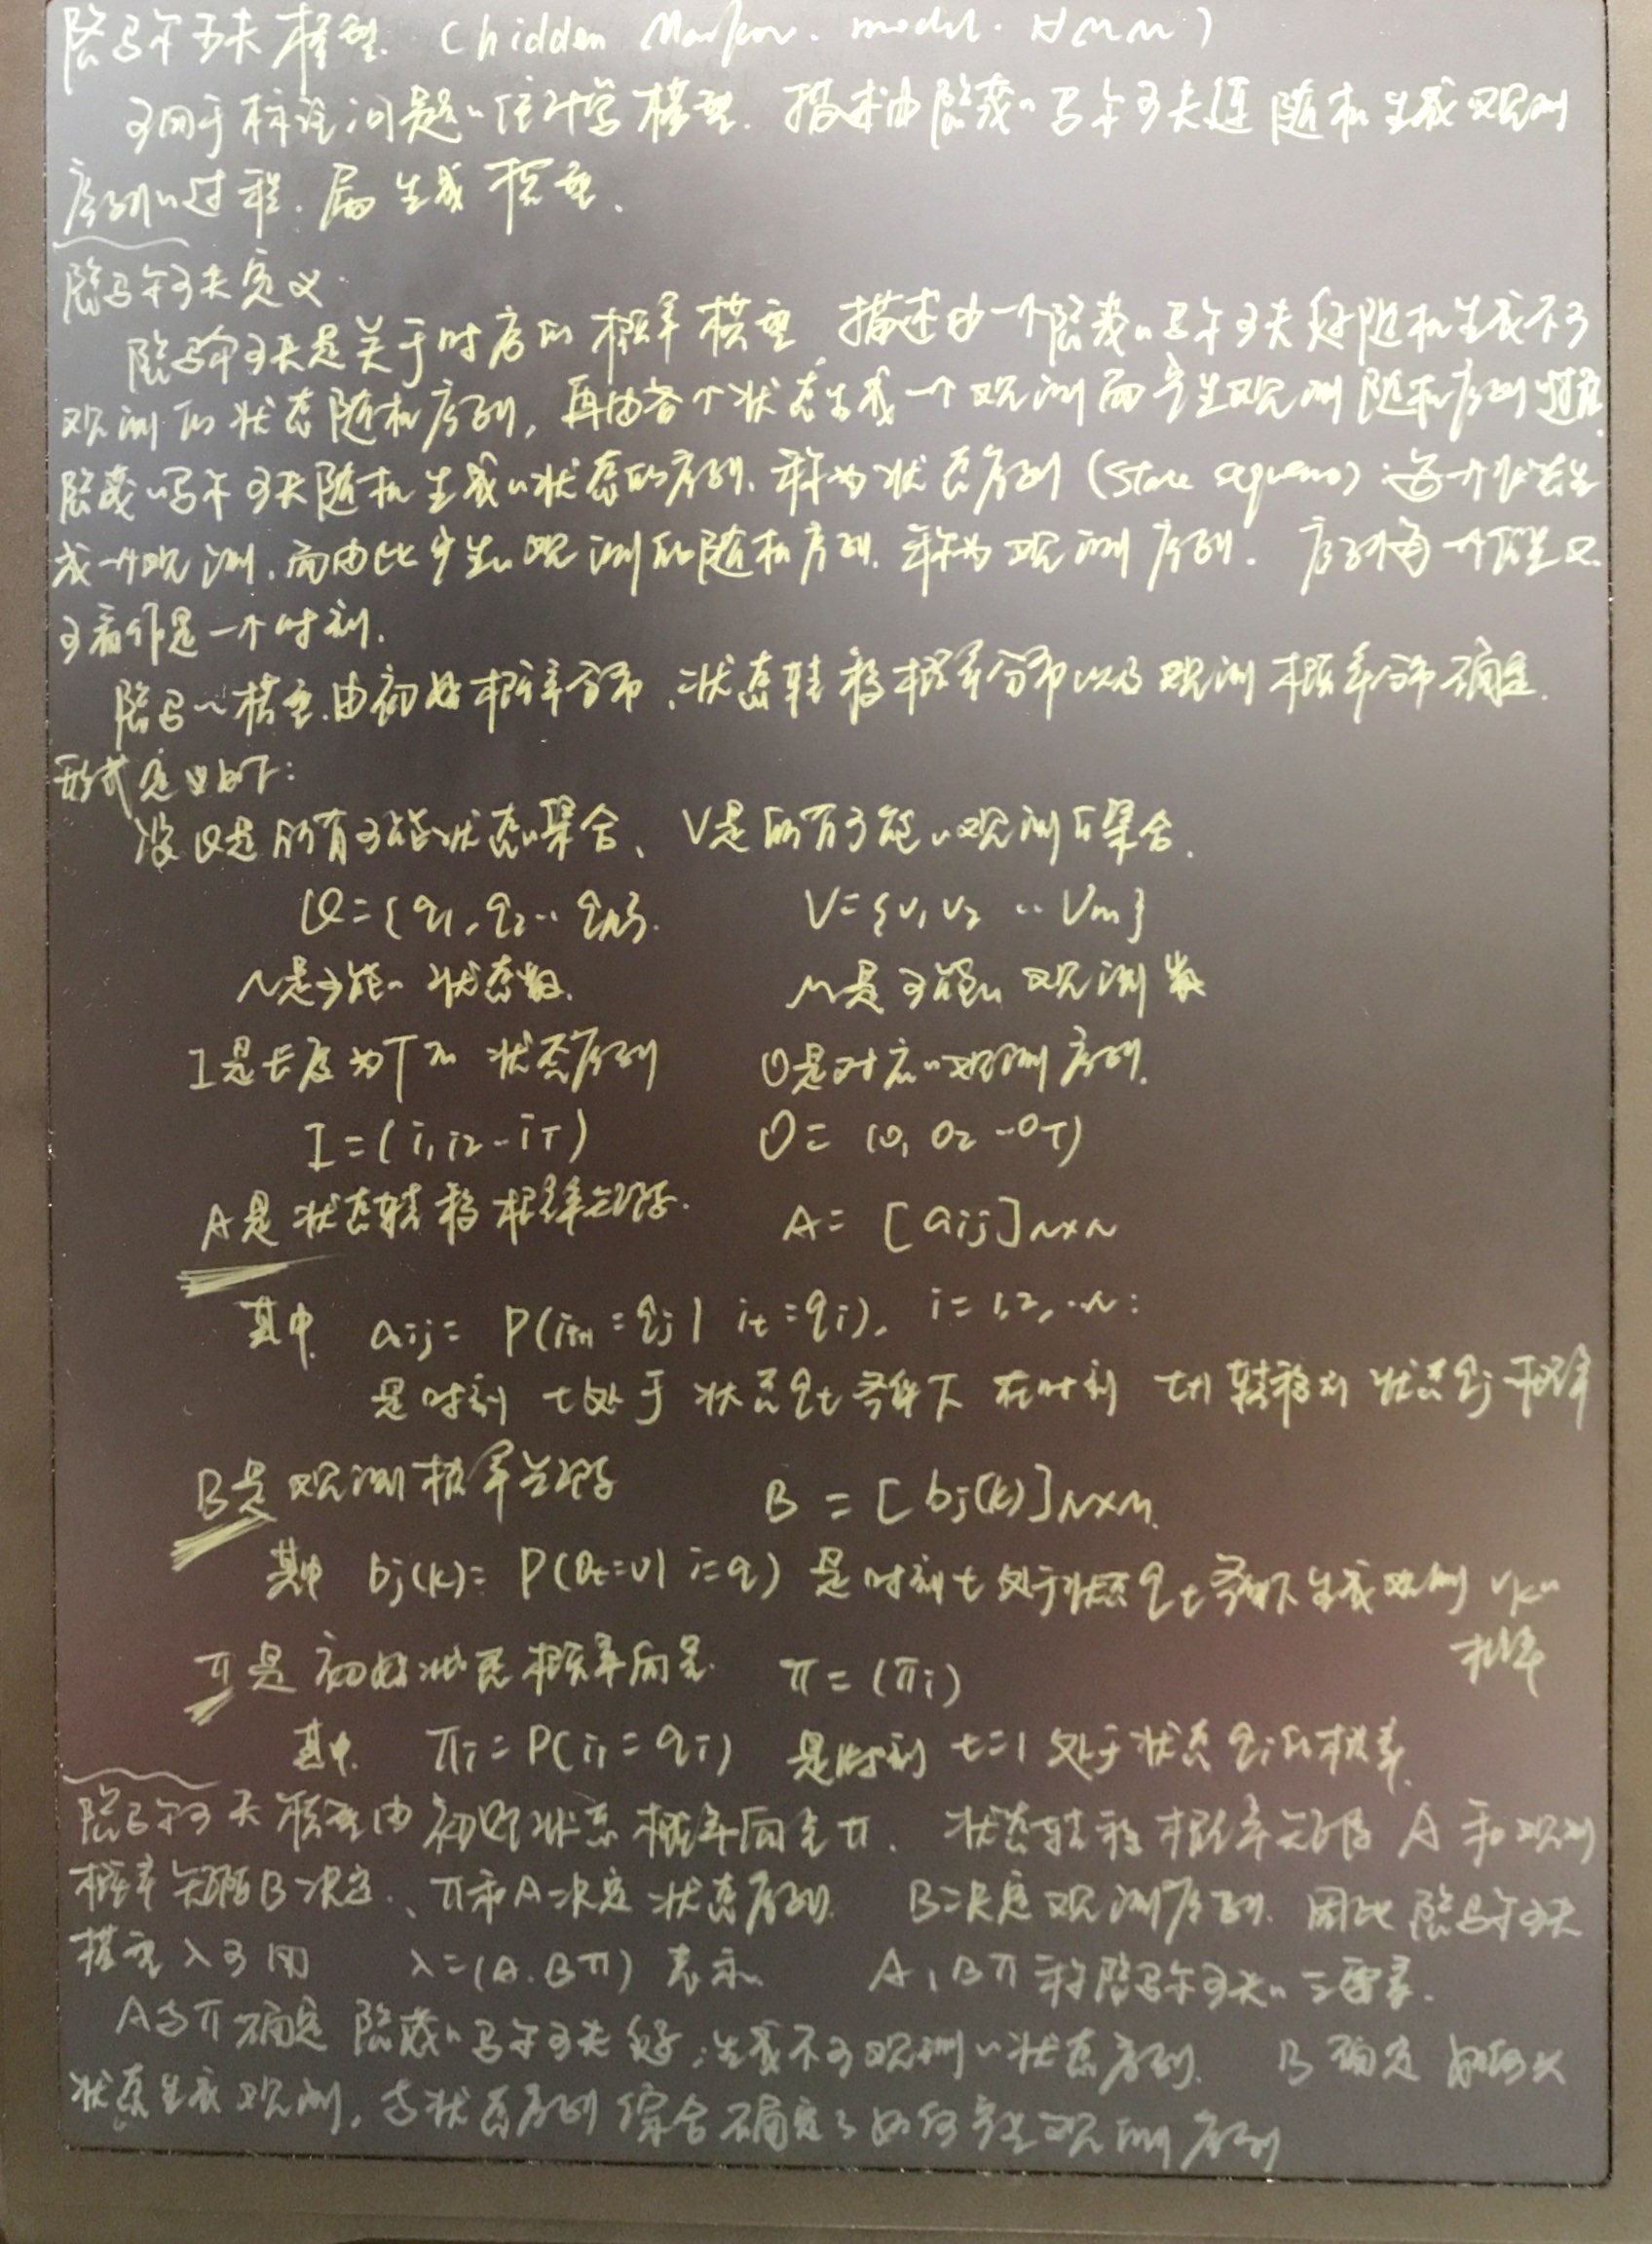 隐马尔可夫模型. (hidden Markov. model. HMM)
可用于标注问题的统计学模型. 描述由隐藏的马尔可夫链随机生成观测
序列的过程. 属生成模型.
隐马尔可夫定义.
隐马尔可夫是关于时序的概率模型 描述由一个隐藏的马尔可夫链随机生成不可
观测的状态随机序列, 再由各个状态生成一个观测而产生观测随机序列过程.
隐藏的马尔可夫随机生成的状态的序列. 称为状态序列 (State sequence); 每一个状态生
成一个观测. 而由此产生的观测的随机序列. 称为观测序列. 序列每一个位置又
可看作是一个时刻.
隐马~模型.由初始概率分布、状态转移概率分布以及观测概率分布确定.
形式定义如下:
设Q是所有可能状态的集合、V是所有可能的观测的集合.
Q={q1, q2.. qN}. V={v1 v2 .. Vm}
N是可能的状态数. M是可能的观测数
I是长度为T的状态序列 O是对应的观测序列.
I=(i1 i2 - iT) O= (o1 o2 -oT)
A是状态转移概率矩阵. A= [aij]N×N
其中. aij= P(it+1=qj | it=qi), i=1,2,..N:
是时刻 t处于状态qt条件下 在时刻 t+1 转移到状态qj 概率
B是观测概率矩阵 B = [bj(k)]N×M.
其中 bj(k)= P(Ot=v| i=q) 是时刻t处于状态qt条件下生成观测 vk的
概率
π是初始状态概率向量. π=(πi)
其中. πi=P(i1=qi) 是时刻 t=1 处于状态qi的概率.
隐马尔可夫模型由初始状态概率向量π、状态转移概率矩阵 A 和观测
概率矩阵B决定、π和A决定状态序列. B决定观测序列. 因此隐马尔可夫
模型λ可用 λ=(A.Bπ) 表示. A,Bπ 称隐马尔可夫的三要素.
A与π确定隐藏的马尔可夫链,生成不可观测的状态序列. B确定如何从
状态生成观测, 与状态序列综合确定了如何产生观测序列